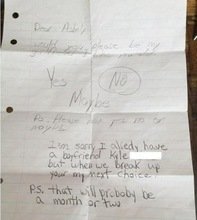 Dear
please be my
Yes
No
Maybe
Ps. Please not put no or
maybe
I'm sorry I alredy have
a boyfriend Kyle
but when we break up
your my next choice!
P.S. that will probaby be
a month or two